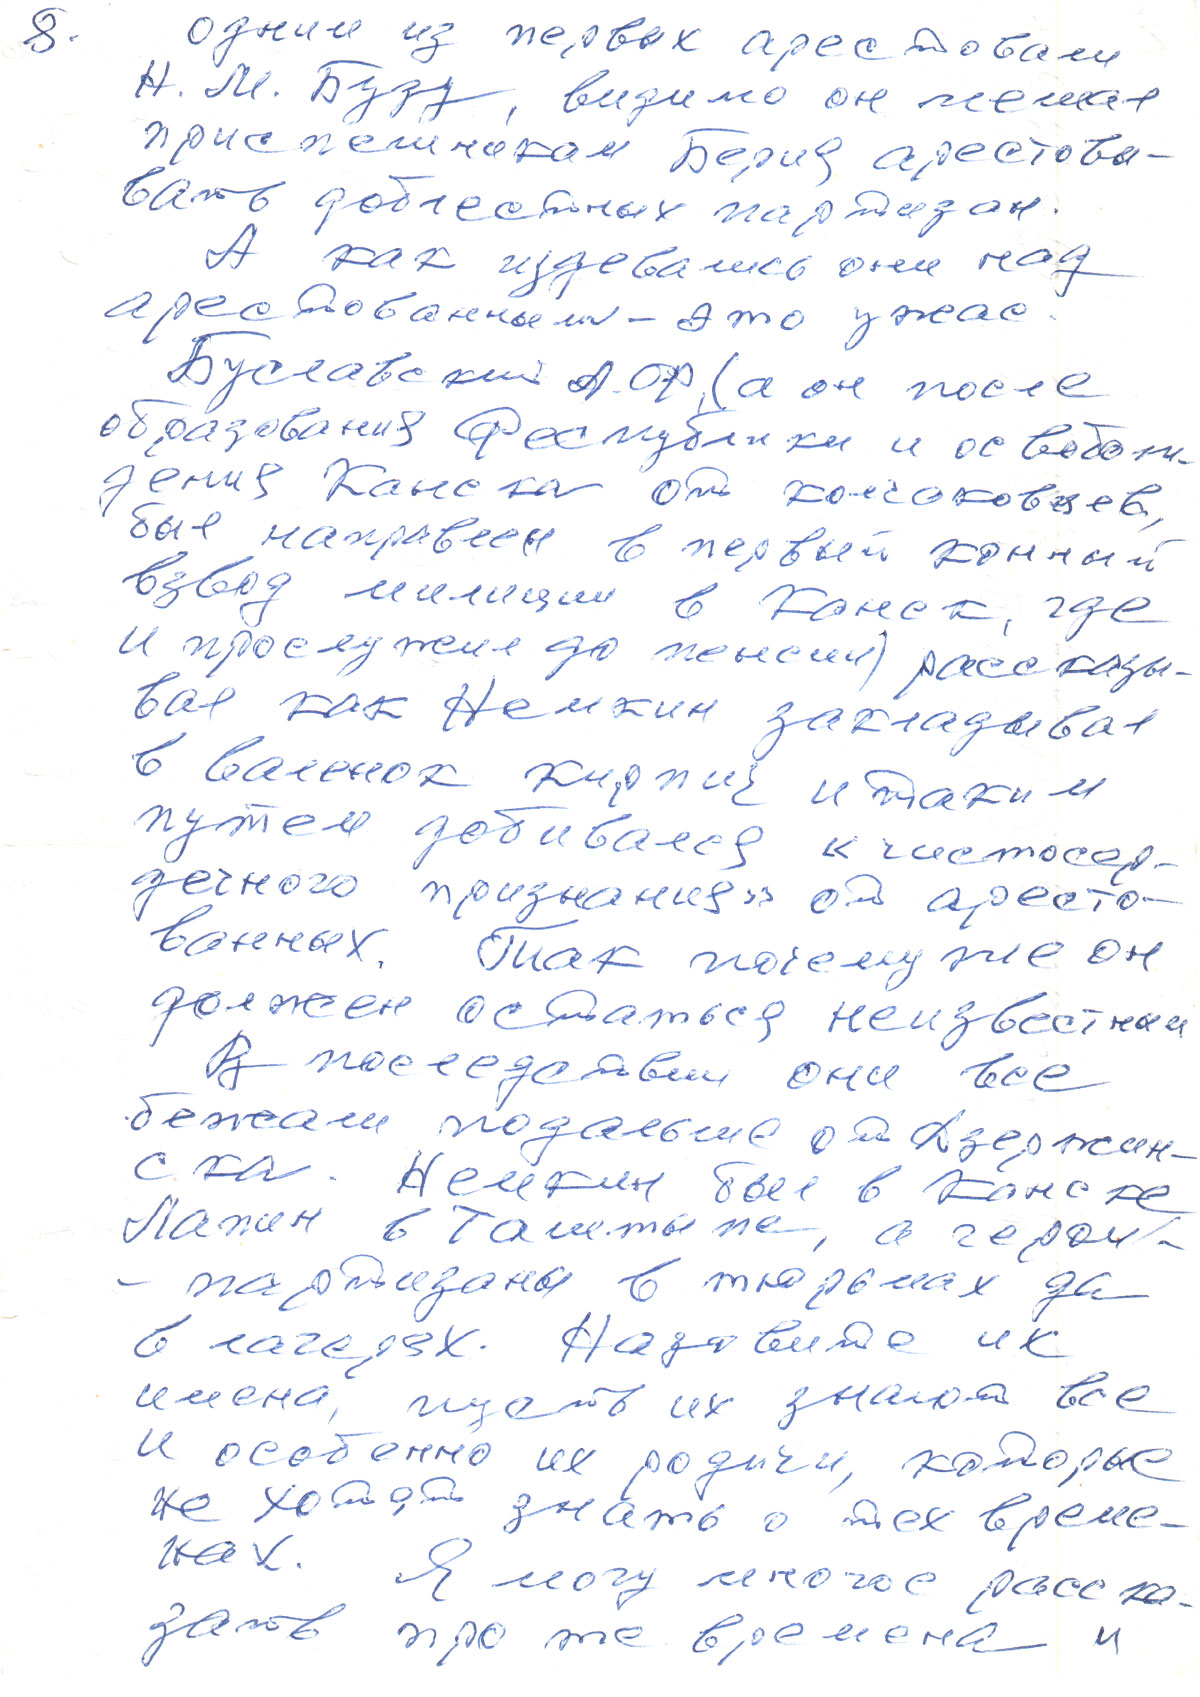 8. одним из первых арестовали
Н. М. Бузу, видимо он мешал
приспешникам Берия арестовы-
вать доблестных партизан.
А как издевались они над
арестованными - это ужас.
Буславский А.Ф. (а он после
образования Республики и освобож-
дения Канска от колчаковцев,
был направлен в первый конный
взвод милиции в Канск, где
и прослужил до пенсии) рассказы-
вал как Немкин закладывал
в валенок кирпич и таким
путем добивался «чистосер-
дечного признания» от аресто-
ванных. Так почему же он
должен остаться неизвестным
В последствии они все
бежали подальше от Дзержин-
ска. Немкин был в Канске
Лапин в Таштыпе, а герои-
- партизаны в тюрьмах да
в лагерях. Назовите их
имена, пусть их знают все
и особенно их родичи, которые
не хотят знать о тех време-
нах. Я могу многое расска-
зать про те времена и